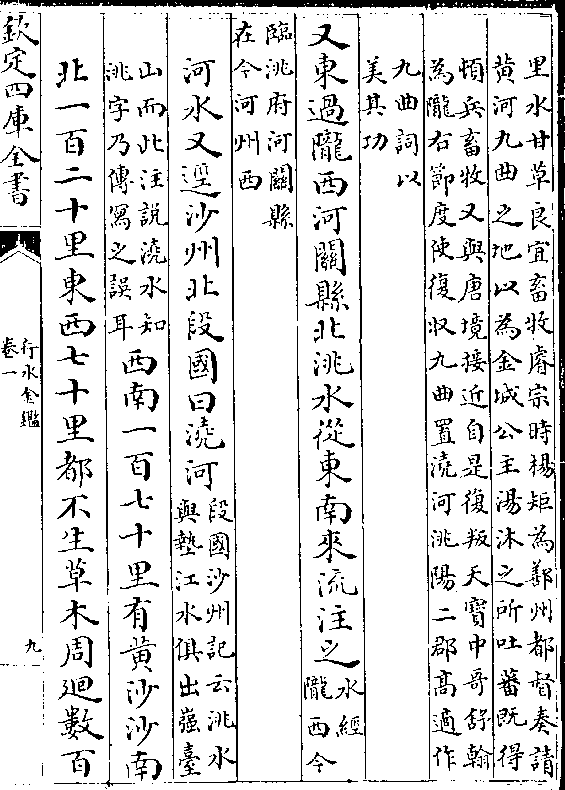 里水甘草良宜畜牧睿宗時楊矩為鄯州都督奏請
黃河九曲之地以為金城公主湯沐之所吐蕃既得
頓兵畜牧又與唐境接近自是復叛天寶中哥舒翰
為隴右節度使復收九曲置澆河洮陽二郡高適作
九曲詞以
美其功
又東過隴西河關縣北洮水從東南來流注之
水經
隴西今
臨洮府河關縣
在今河州西
河水又逕沙州北段國曰澆河
段國沙州記云洮水
與墊江水俱出嵹臺
山而此注說澆水知
洮字乃傳寫之誤耳
西南一百七十里有黃沙沙南
北一百二十里東西七十里都不生草木周廻數百
欽定四庫全書
行水金鑑
卷一
九